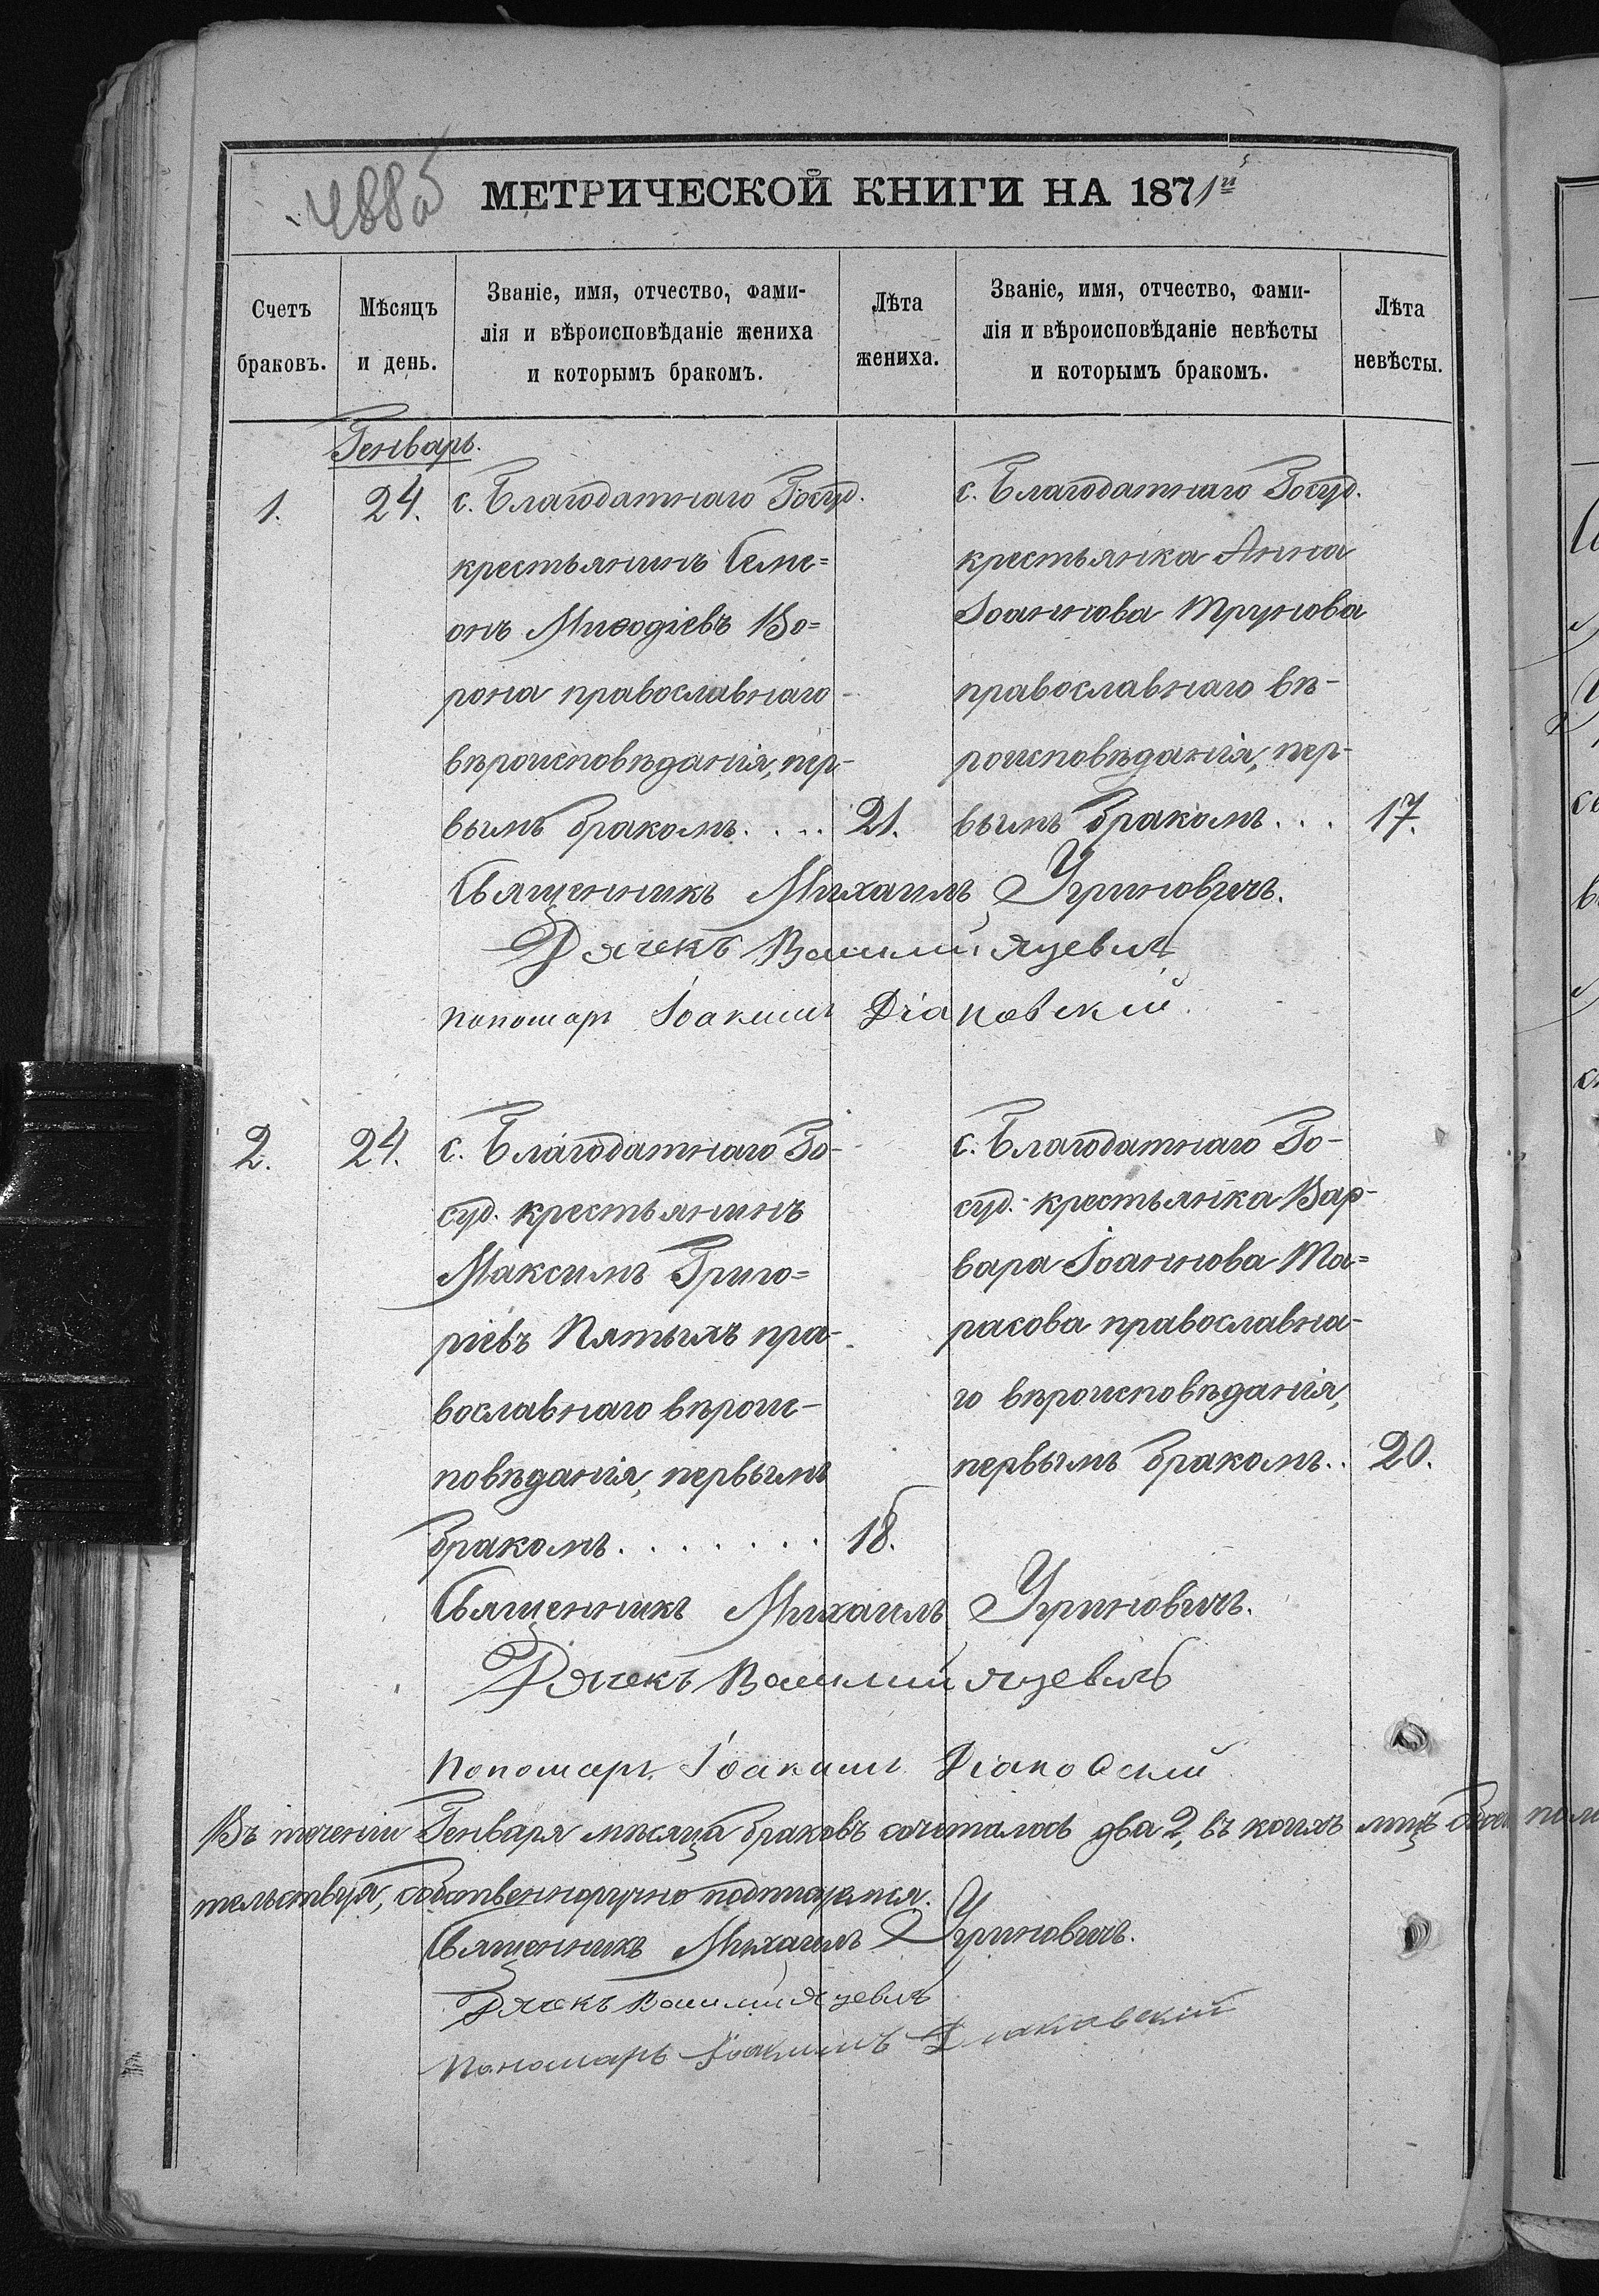 488
МЕТРИЧЕСКОЙ КНИГИ НА 1871й
Счетъ браковъ.
Мѣсяцъ и день.
Званіе, имя, отчество, фами-
лія и вѣроисповѣданіе жениха
и которымъ бракомъ.
Лѣта жениха.
Званіе, имя, отчество, фами-
лія и вѣроисповѣданіе невѣсты
и которымъ бракомъ.
Лѣта невѣсты.
Генварь.
1.
24.
с. Благодатнаго Госуд.
крестьянинъ Семе=
онъ Миѳодіевъ Во=
рона православнаго
вѣроисповѣданія, пер-
вымъ бракомъ. . . .
21.
с. Благодатнаго Госуд.
крестьянка Анна
Іоаннова Трунова
православнаго вѣ-
роисповѣданія, пер-
вымъ бракомъ. . .
17.
Священникъ Михаилъ Угриновичъ.
Дячекъ Василий Яцевичъ
пономарь Іоакимъ Діаковскій.
2.
24.
с. Благодатнаго Го-
суд. крестьянинъ
Максимъ Григо=
ріевъ Пятыхъ пра-
вославнаго вѣроис-
повѣданія, первымъ
бракомъ. . . . . . .
18.
с. Благодатнаго Го-
суд. крестьянка Вар-
вара Іоаннова Та=
расова православна-
го вѣроисповѣданія,
первымъ бракомъ. .
20.
Священникъ Михаилъ Угриновичъ.
Дячекъ Василий Яцевичъ
Пономарь Іоакимъ Діаковский
Въ теченіи Генваря мѣсяца браковъ сочеталось два 2, въ коихъ лицъ обоего пола
тельствуя, собственноручно подписуемся.
Священникъ Михаилъ Угриновичъ.
Дячекъ Василий Яцевичъ
Пономарь Іоакимъ Діаковскій